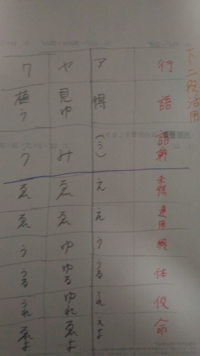 下二段活用
行 語 語幹 未然 連用 終 体 仮 命
ア 得 (う) え え う うる うれ えよ
ヤ 見ゆ み ゑ ゑ ゆ ゆる ゆれ ゑよ
ワ 植う う ゑ ゑ う うる うれ ゑよ